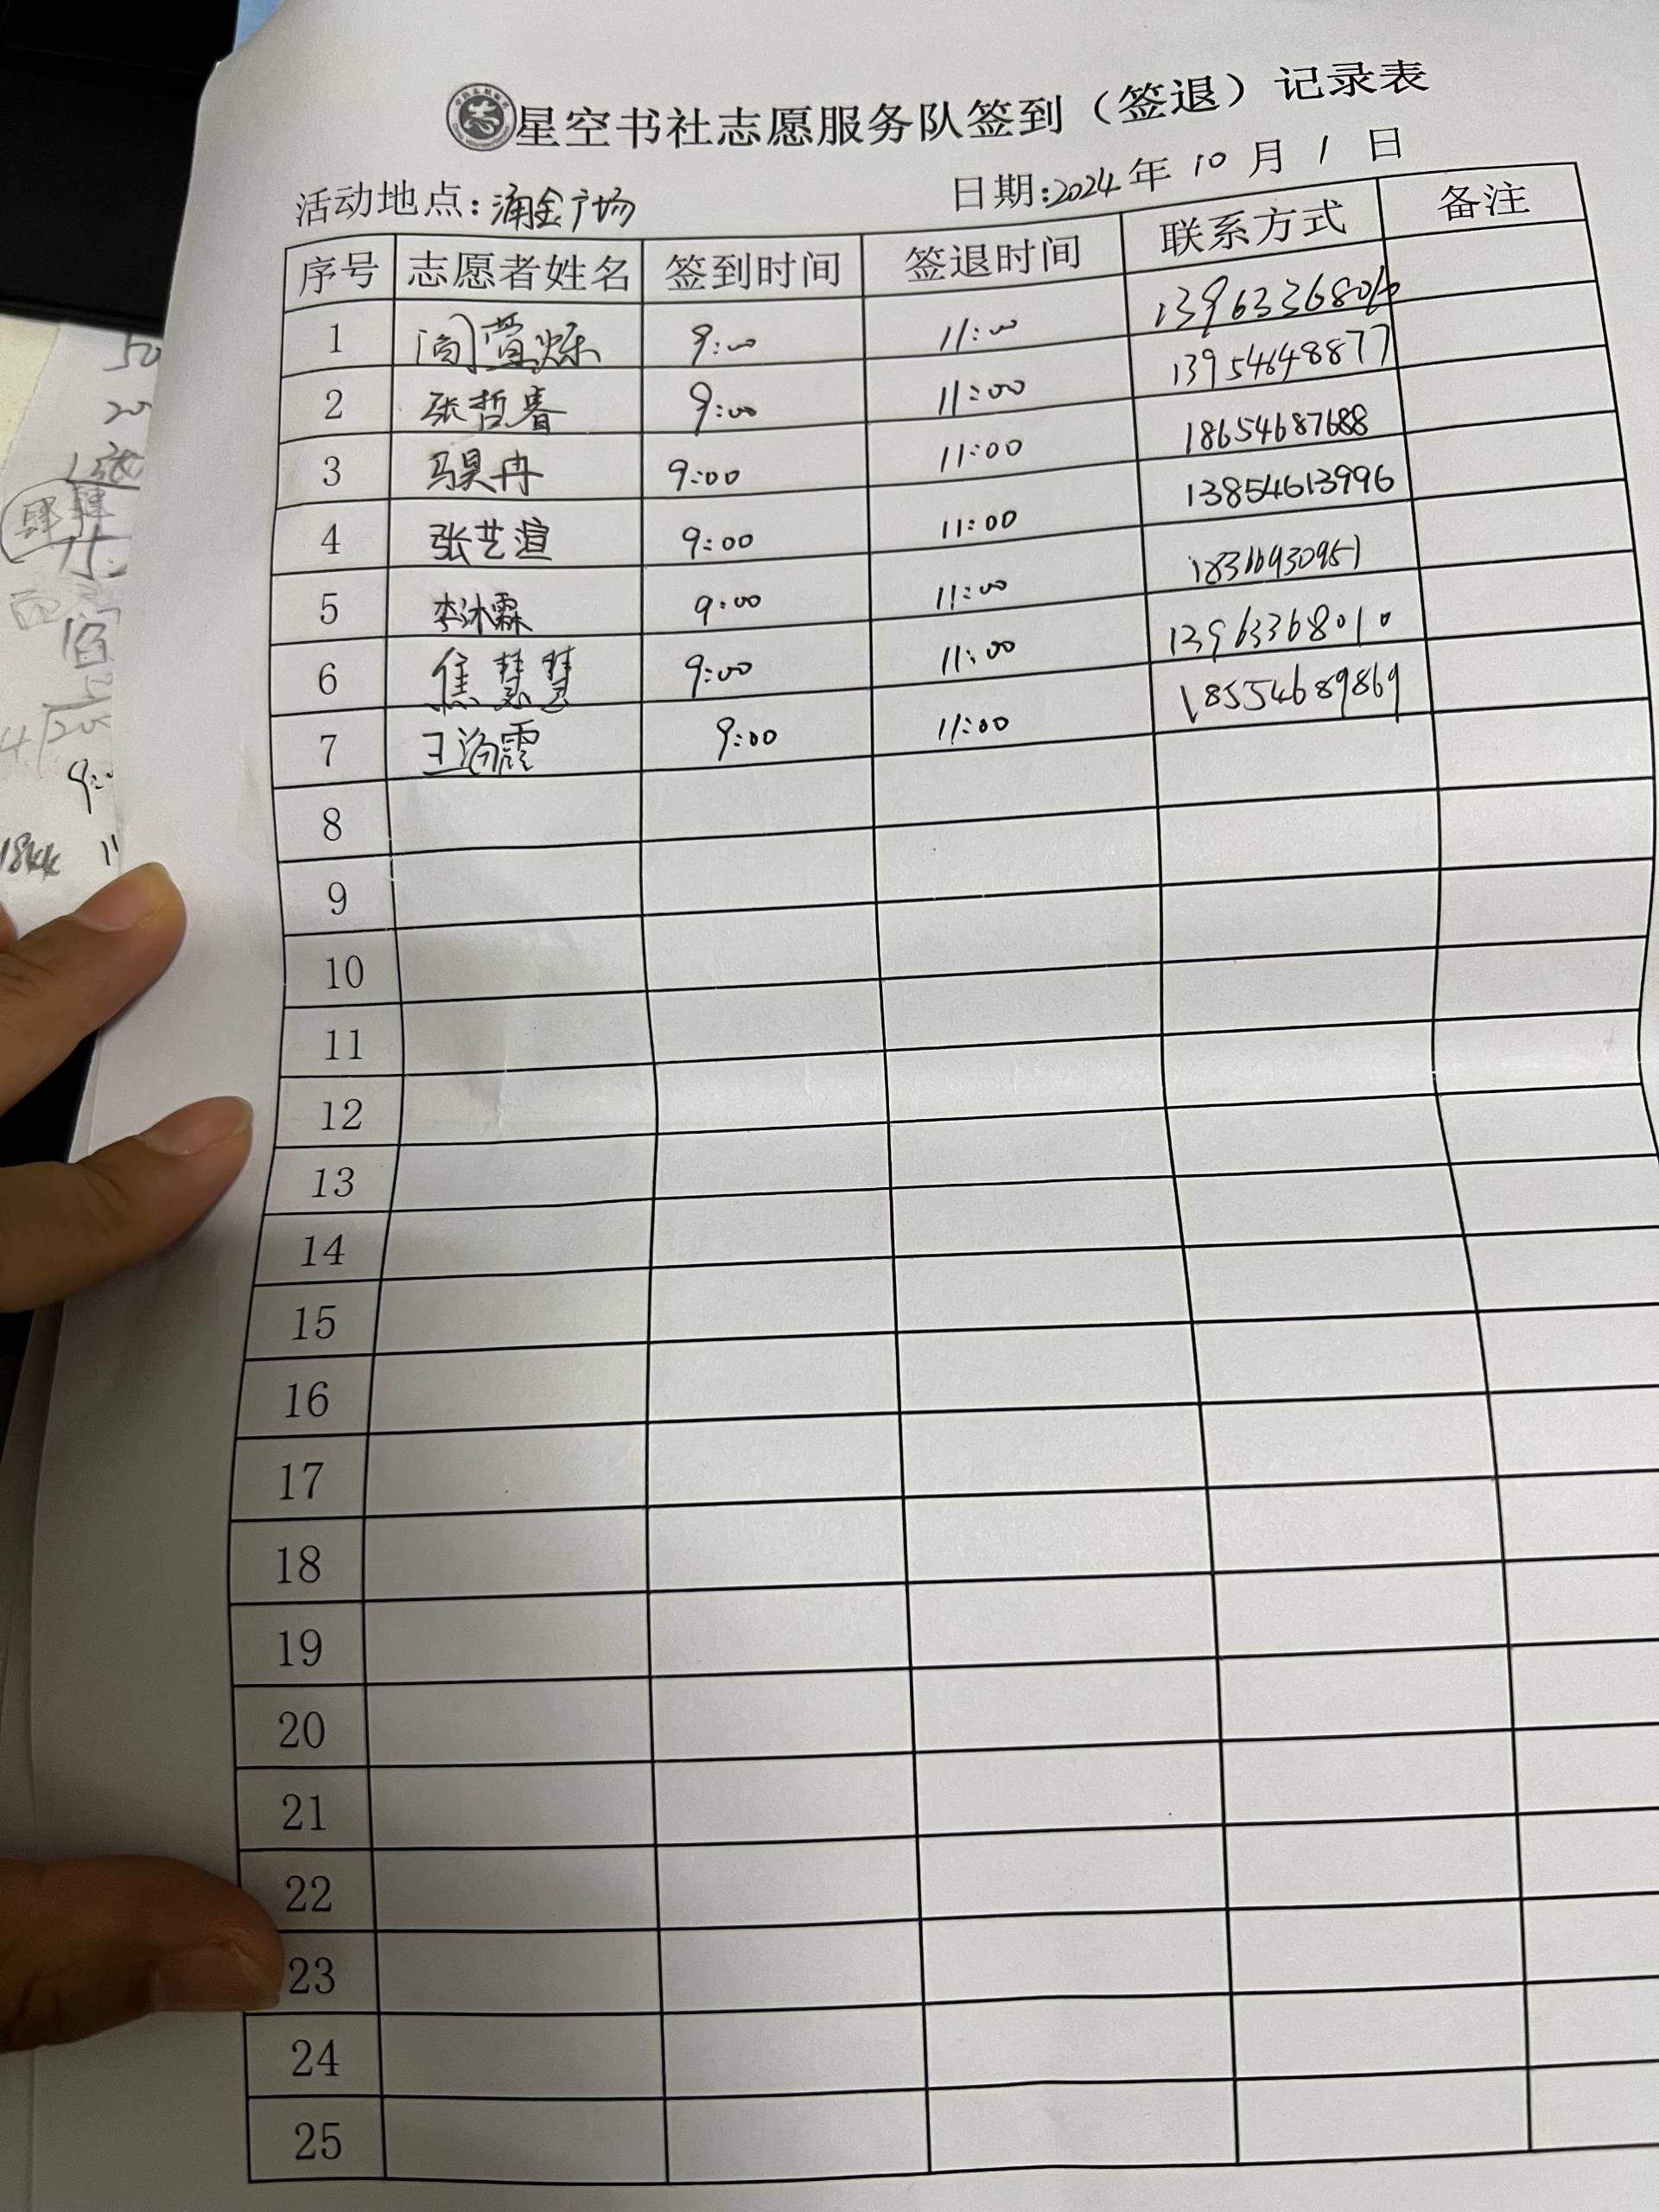 星空书社志愿服务队签到（签退）记录表
活动地点：涌金广场 日期：2024年10月1日
序号 志愿者姓名 签到时间 签退时间 联系方式 备注
1 闫萱烁 9:00 11:00 13963368010
2 张哲睿 9:00 11:00 13954648877
3 马昊冉 9:00 11:00 18654687688
4 张艺渲 9:00 11:00 13854613996
5 李沐霖 9:00 11:00 18316930951
6 焦慧慧 9:00 11:00 13963368010
7 王洛霞 9:00 11:00 18554689869
8
9
10
11
12
13
14
15
16
17
18
19
20
21
22
23
24
25
50
20
9:
11